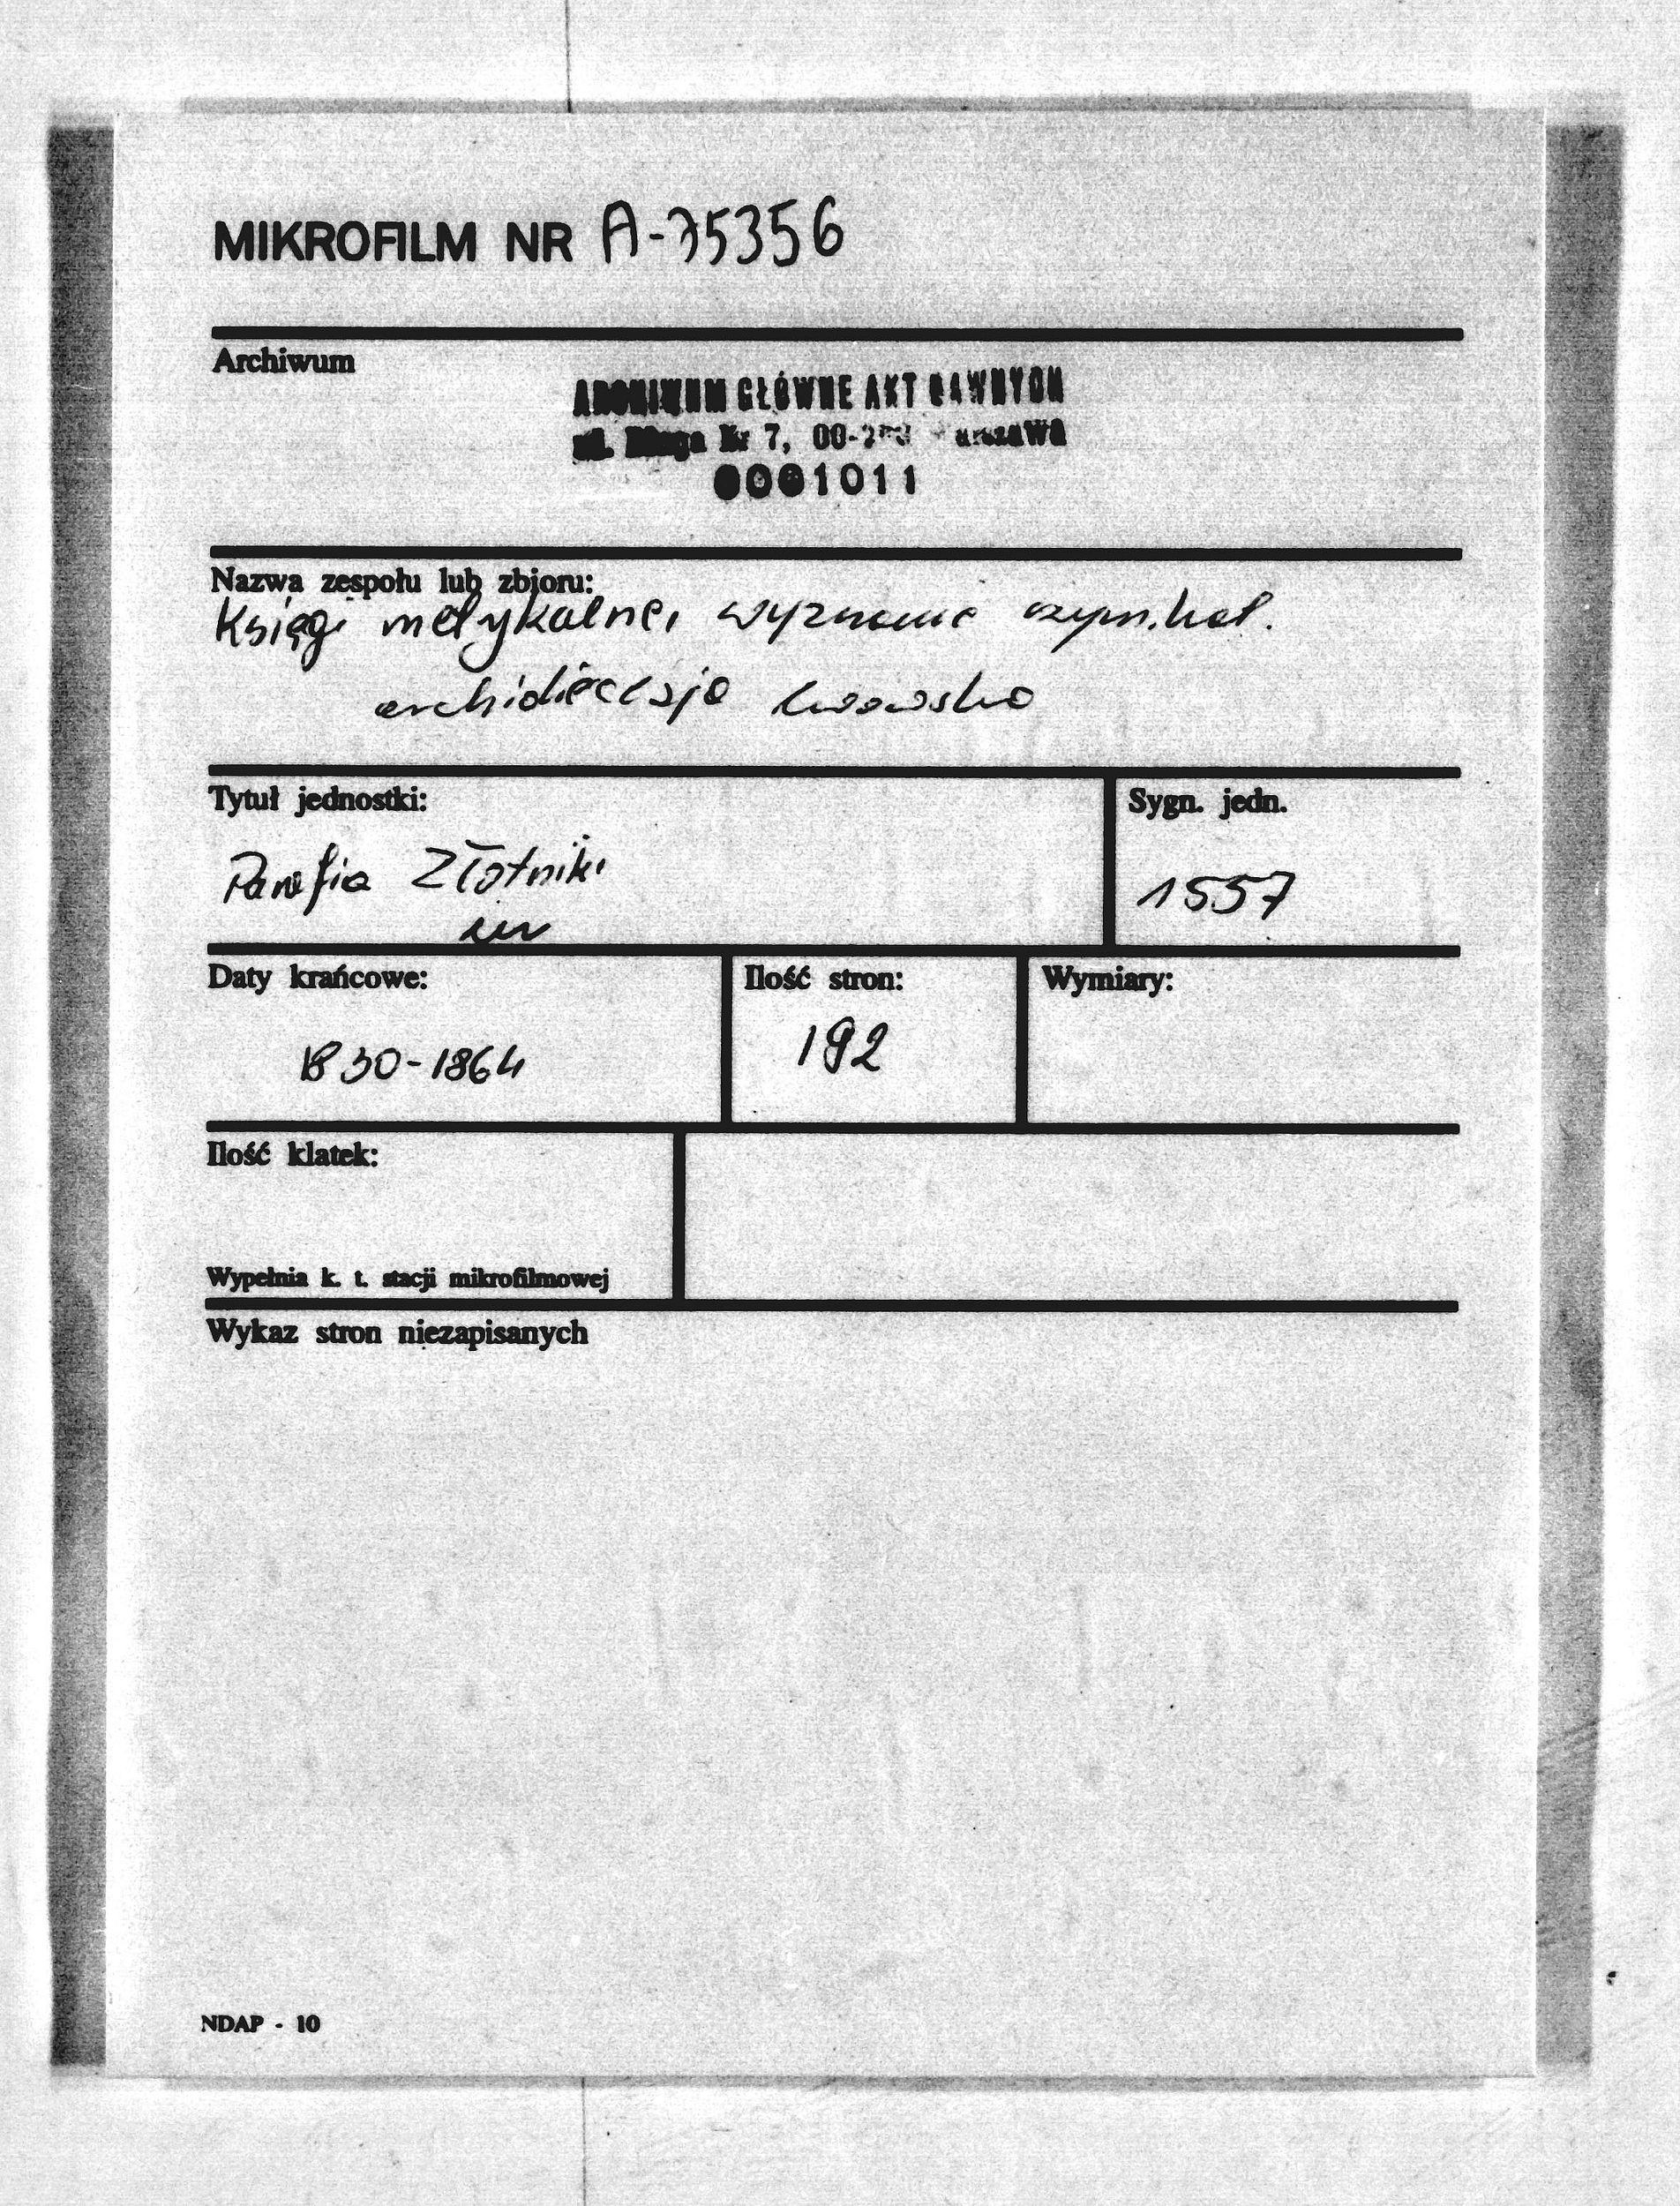 MIKROFILM NR A-75356
Archiwum
ARCHIWUM GŁÓWNE AKT DAWNYCH
ul. Długa Nr 7, 00- Warszawa
0001011
Nazwa zespołu lub zbioru:
Księgi metykalne, wyznanie rzym.kat.
archidiecezja lwowska
Tytuł jednostki:
Sygn. jedn.
Parafia Złotniki
1557
Daty krańcowe:
Ilość stron:
Wymiary:
1830-1864
192
Ilość klatek:
Wypełnia k. t. stacji mikrofilmowej
Wykaz stron niezapisanych
NDAP - 10